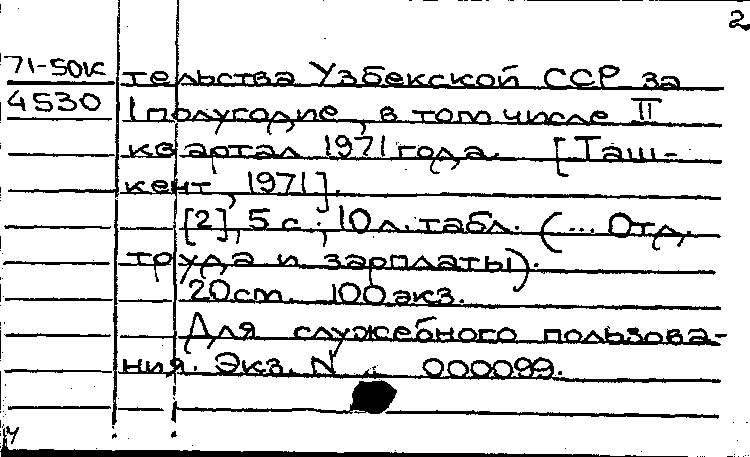 2
71-50к тельства Узбекской ССР за
4530 I полугодие, в том числе II
квартал 1971 года. [Таш-
кент, 1971].
[2], 5 с.; 10 л. табл. (... Отд.
труда и зарплаты).
20 cm. 100 экз.
Для служебного пользова-
ния. Экз. N 000099.